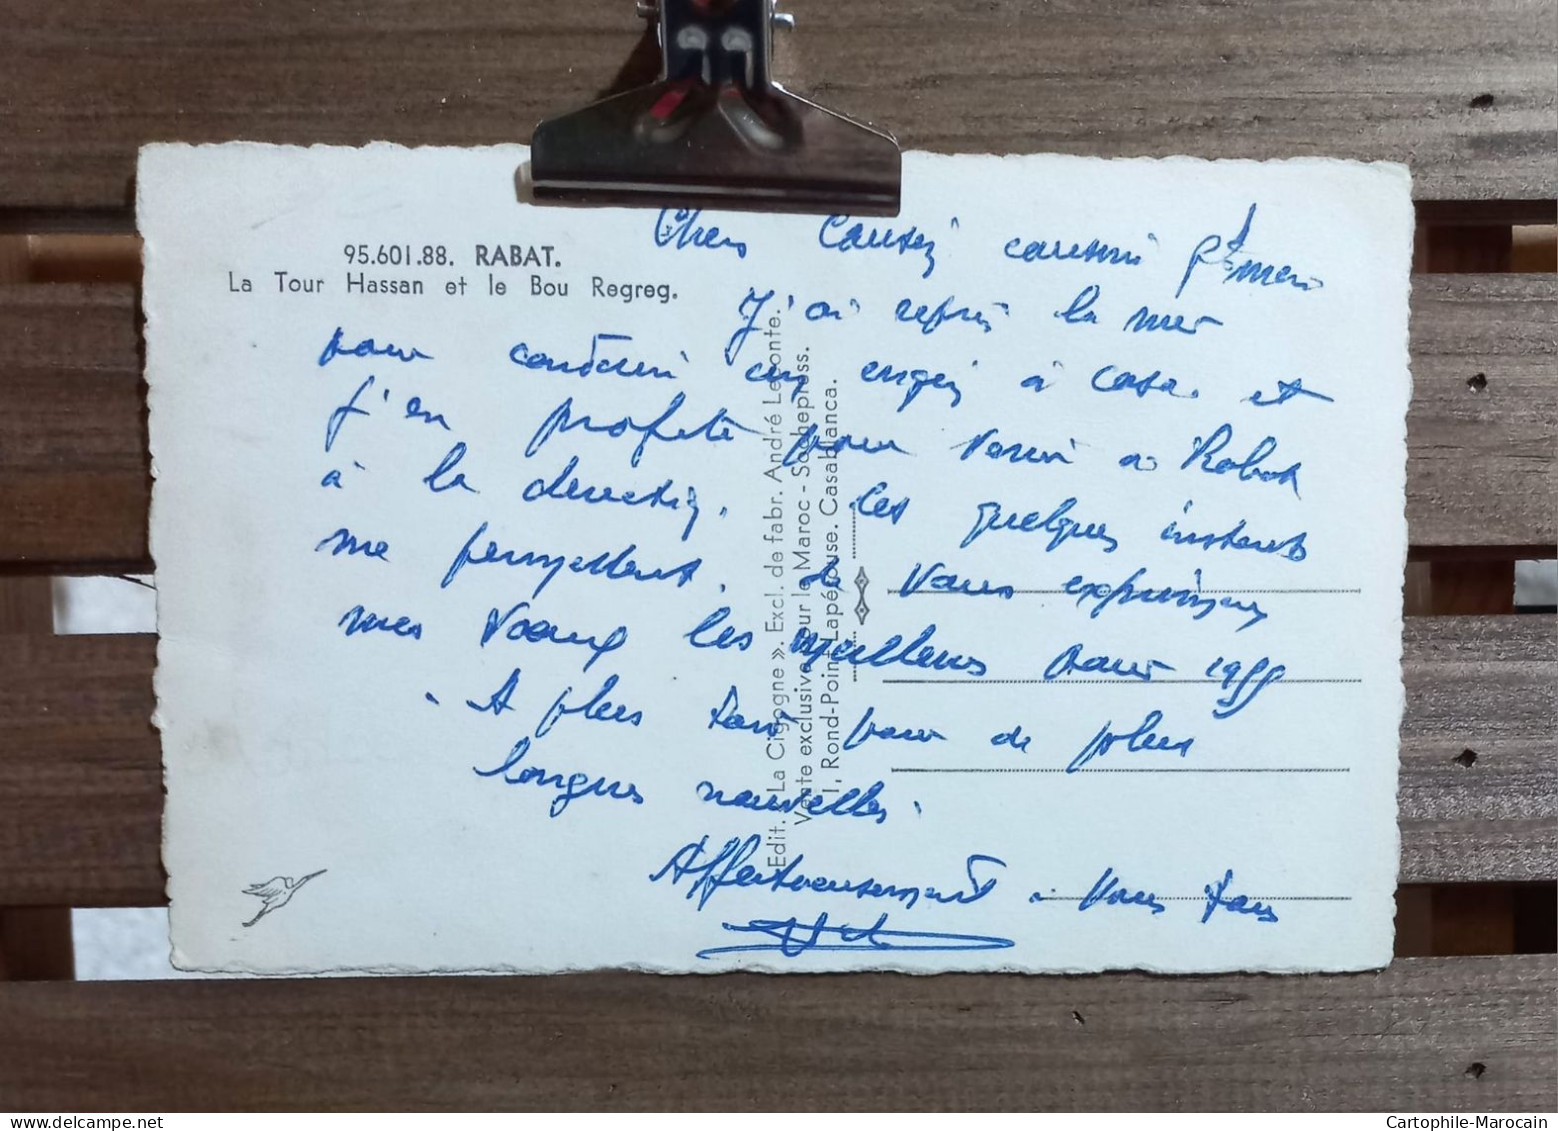 95.601.88. RABAT.
La Tour Hassan et le Bou Regreg.
Edit. « La Cigogne ». Excl. de fabr. André Leconte.
Vente exclusive pour le Maroc - Sochepress.
1, Rond-Point Lapérouse. Casablanca.
Chers Cousin cousine
J'ai repris la mer
pour conduire un engin à Casa. et
j'en profite pour venir à Rabat
à la direction. Ces quelques instants
me permettent de vous exprimer
mes Voeux les meilleurs pour 1955
A plus tard pour de plus
longues nouvelles.
Affectueusement à vous tous
Cartophile-Marocain